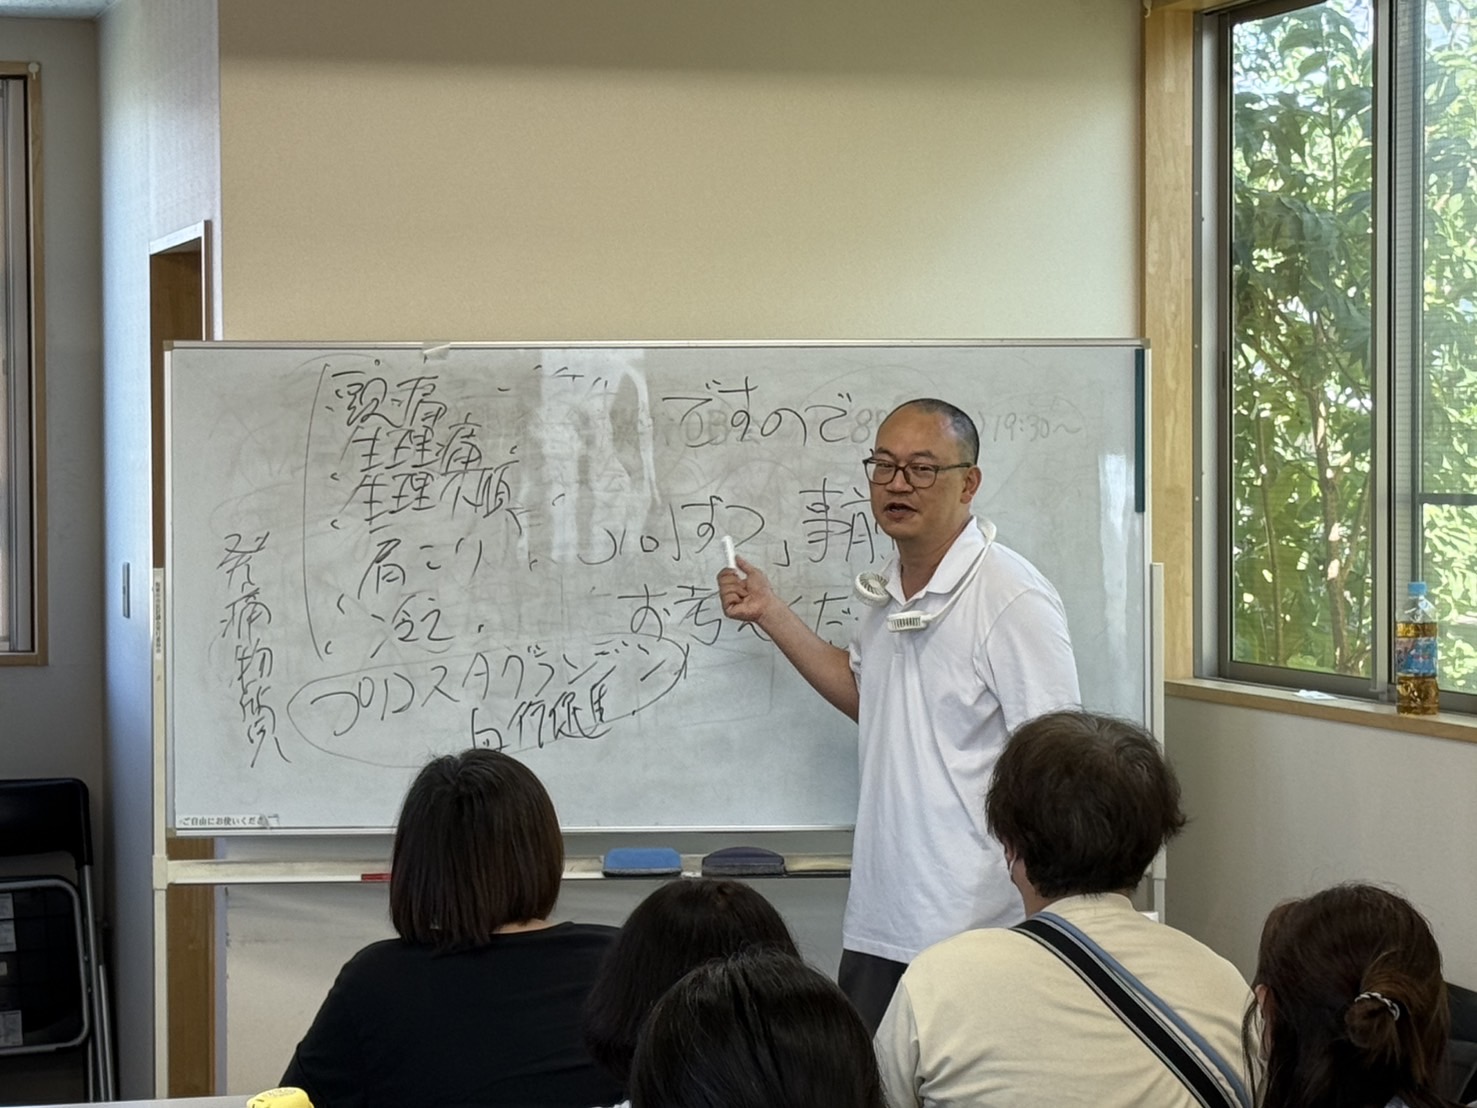 頭痛
生理痛
生理不順
肩こり
冷え
プロスタグランジン
血行促進
発痛物質
ですので
事前
お考えくだ
19:30〜
ご自由にお使いくださ